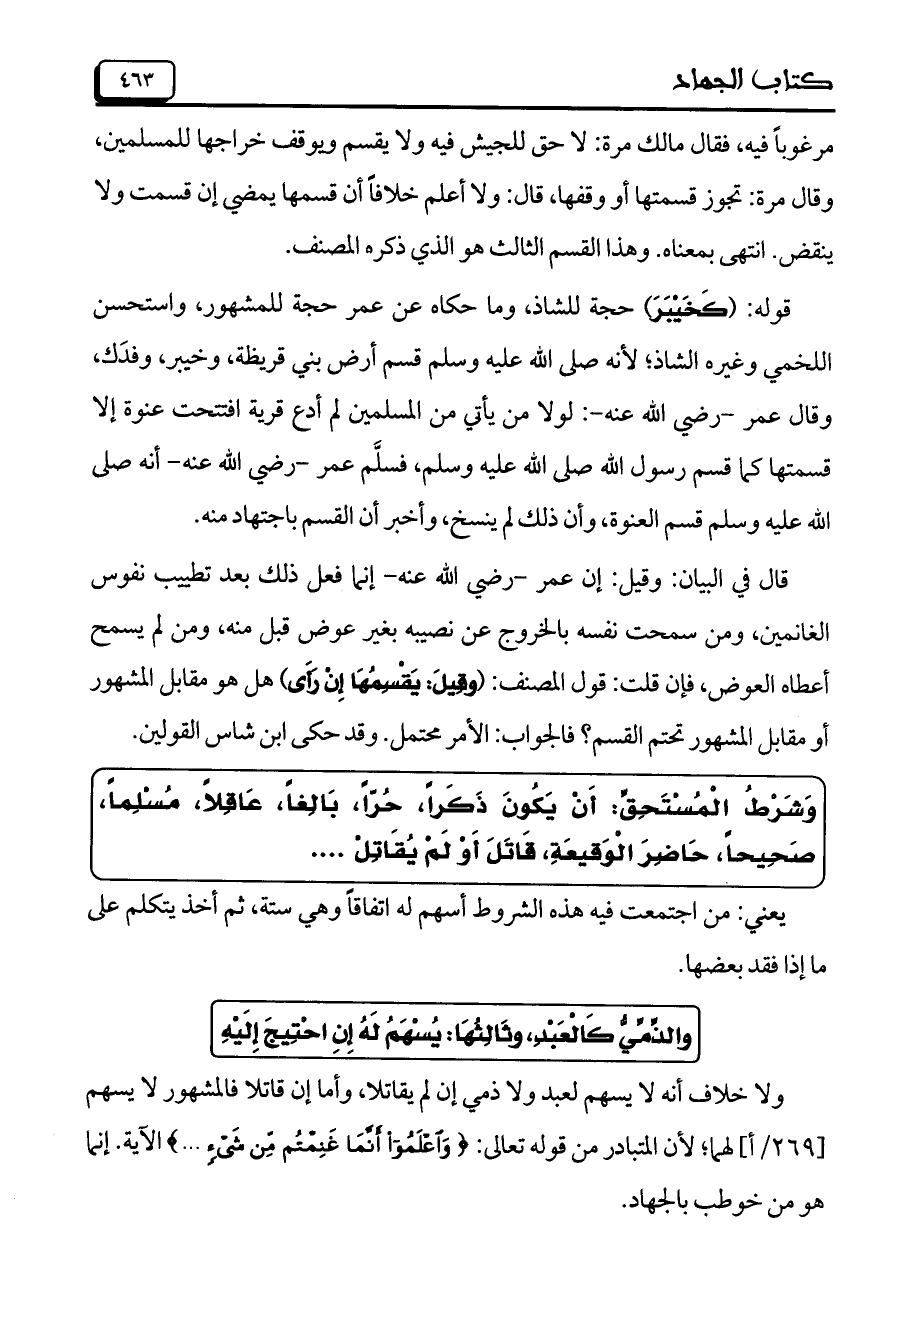 كتاب الجهاد
٤٦٣
مرغوباً فيه، فقال مالك مرة: لا حق للجيش فيه ولا يقسم ويوقف خراجها للمسلمين،
وقال مرة: تجوز قسمتها أو وقفها، قال: ولا أعلم خلافاً أن قسمها يمضي إن قسمت ولا
ينقض. انتهى بمعناه. وهذا القسم الثالث هو الذي ذكره المصنف.
قوله: (كَخَيْبَرَ) حجة للشاذ، وما حكاه عن عمر حجة للمشهور، واستحسن
اللخمي وغيره الشاذ؛ لأنه صلى الله عليه وسلم قسم أرض بني قريظة، وخيبر، وفدَك،
وقال عمر –رضي الله عنه–: لولا من يأتي من المسلمين لم أدع قرية افتتحت عنوة إلا
قسمتها كما قسم رسول الله صلى الله عليه وسلم، فسلَّم عمر –رضي الله عنه– أنه صلى
الله عليه وسلم قسم العنوة، وأن ذلك لم ينسخ، وأخبر أن القسم باجتهاد منه.
قال في البيان: وقيل: إن عمر –رضي الله عنه– إنما فعل ذلك بعد تطييب نفوس
الغانمين، ومن سمحت نفسه بالخروج عن نصيبه بغير عوض قبل منه، ومن لم يسمح
أعطاه العوض، فإن قلت: قول المصنف: (وقِيلَ: يَقْسِمُهَا إنْ رَأَى) هل هو مقابل المشهور
أو مقابل المشهور تحتم القسم؟ فالجواب: الأمر محتمل. وقد حكى ابن شاس القولين.
وَشَرْطُ الْمُسْتَحِقِّ: أَنْ يَكُونَ ذَكَراً، حُرّاً، بَالِغاً، عَاقِلاً، مُسْلِماً،
صَحِيحاً، حَاضِرَ الْوَقِيعَةِ، قَاتَلَ أَوْ لَمْ يُقَاتِلْ ....
يعني: من اجتمعت فيه هذه الشروط أسهم له اتفاقاً وهي ستة، ثم أخذ يتكلم على
ما إذا فقد بعضها.
والذِّمِّيُّ كَالْعَبْدِ، وثَالِثُهَا: يُسْهَمُ لَهُ إِنِ احْتِيجَ إِلَيْهِ
ولا خلاف أنه لا يسهم لعبد ولا ذمي إن لم يقاتلا، وأما إن قاتلا فالمشهور لا يسهم
[٢٦٩/ أ] لهما؛ لأن المتبادر من قوله تعالى: ﴿ وَٱعْلَمُوٓا۟ أَنَّمَا غَنِمْتُم مِّن شَىْءٍ ...﴾ الآية. إنما
هو من خوطب بالجهاد.